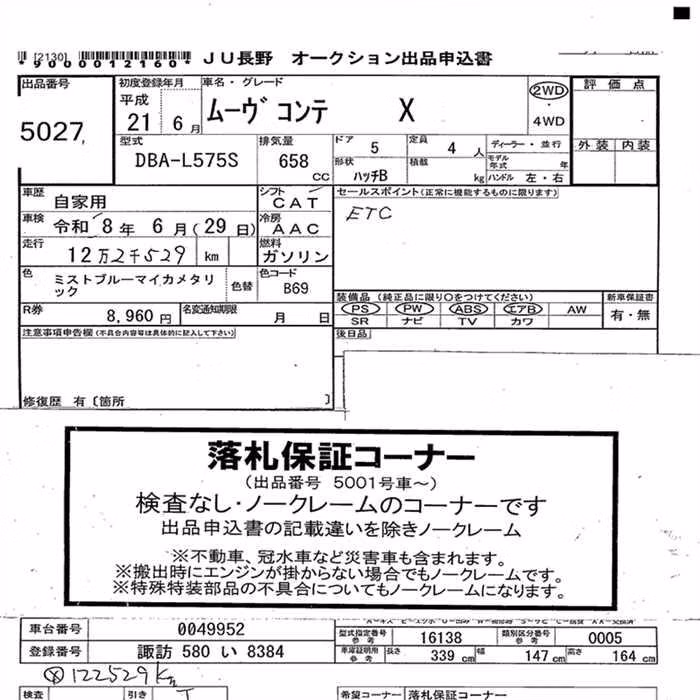 [2130] *9000012160* JU長野 オークション出品申込書
出品番号 初度登録年月 車名・グレード 評価点
5027 平成 21 6月 ムーヴ コンテ X 2WD ・ 4WD
外装 内装
型式 DBA-L575S 排気量 658 CC ドア 5 定員 4人 ディーラー・並行
形状 ハッチB 積載 kg モデル年式 年 ハンドル 左・右
車歴 自家用 シフト CAT セールスポイント(正常に機能するものに限ります)
車検 令和 8年 6月(29日) 冷房 AAC ETC
走行 12万2千529 km 燃料 ガソリン
色 ミストブルーマイカメタリック 色替 色コード B69
装備品 (純正品に限り○をつけてください) 新車保証書
R券 8,960円 名変通知期限 月 日 PS PW ABS エアB AW 有・無
SR ナビ TV カワ
注意事項申告欄(不具合内容等は具体的に記入して下さい) 後日品
修復歴 有〔箇所 〕
落札保証コーナー
(出品番号 5001号車~)
検査なし・ノークレームのコーナーです
出品申込書の記載違いを除きノークレーム
※不動車、冠水車など災害車も含まれます。
※搬出時にエンジンが掛からない場合でもノークレームです。
※特殊特装部品の不具合についてもノークレームになります。
車台番号 0049952 型式指定番号 参考 16138 類別区分番号 参考 0005
登録番号 諏訪 580 い 8384 車庫証明用 参考 長さ 339 cm 幅 147 cm 高さ 164 cm
※122529Km
検査 引き T 希望コーナー 落札保証コーナー